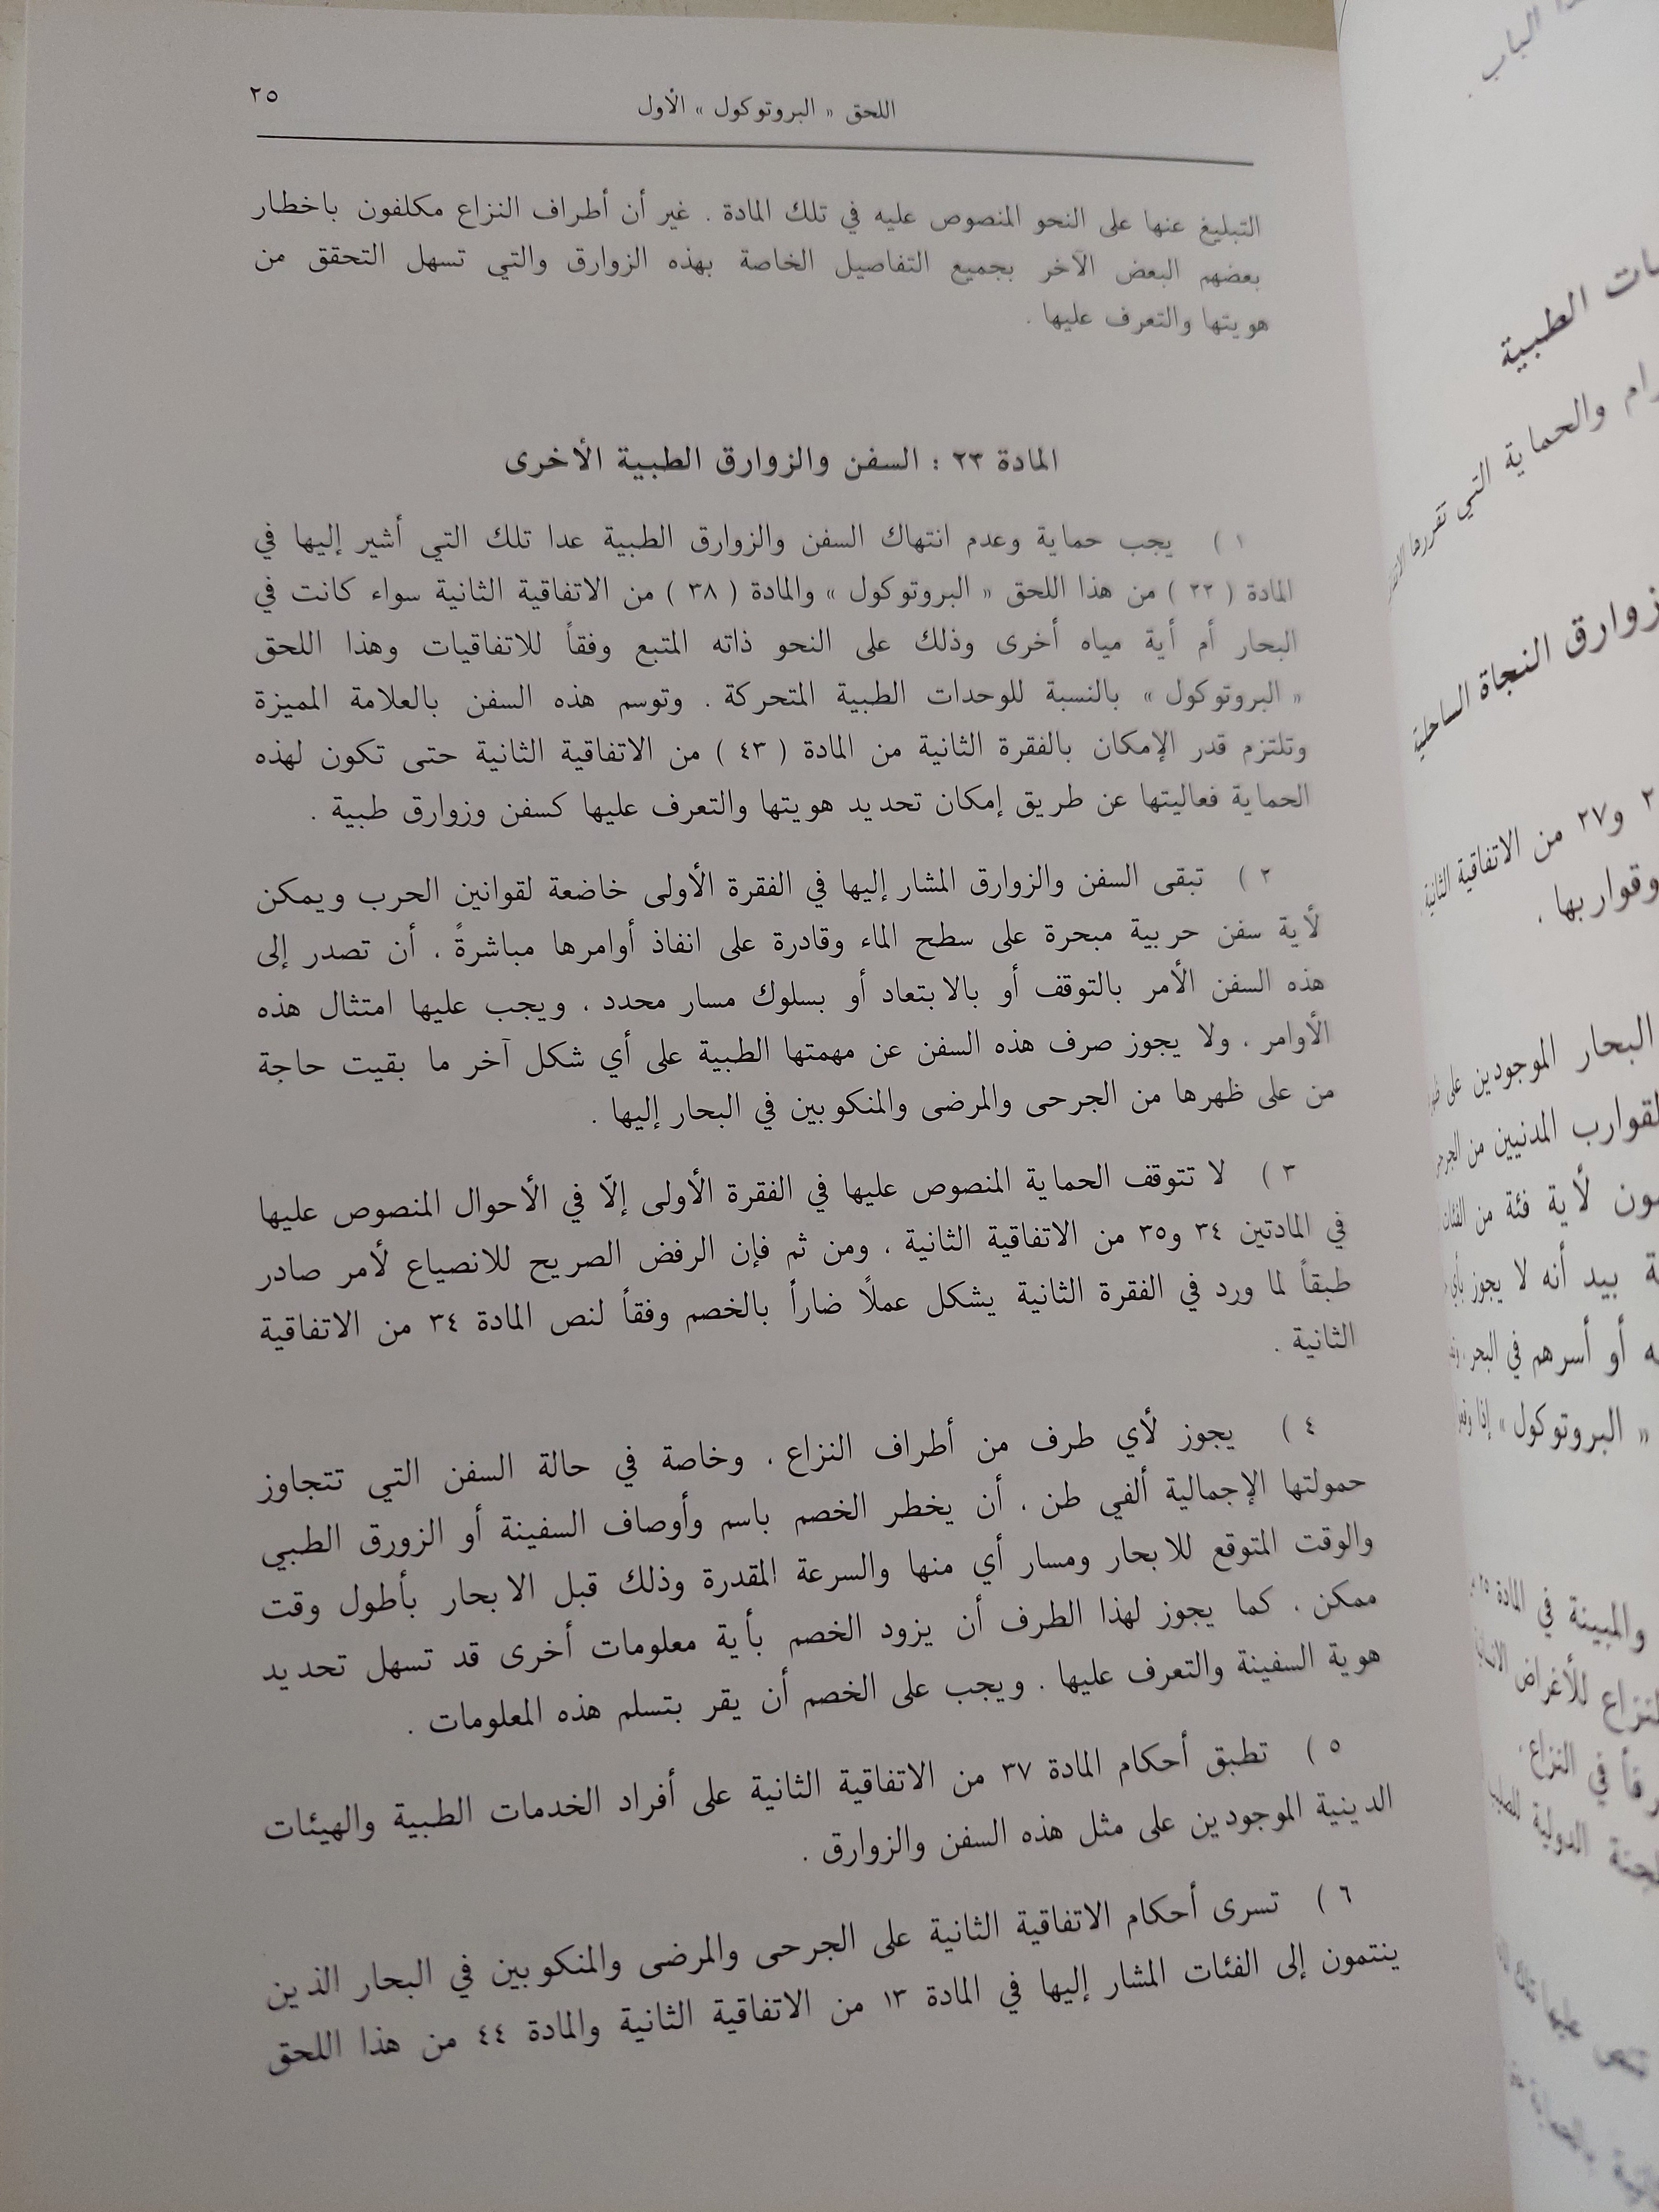 اللحق « البروتوكول » الأول
٢٥
التبليغ عنها على النحو المنصوص عليه في تلك المادة . غير أن أطراف النزاع مكلفون باخطار
بعضهم البعض الآخر بجميع التفاصيل الخاصة بهذه الزوارق والتي تسهل التحقق من
هويتها والتعرف عليها .
المادة ٢٣ : السفن والزوارق الطبية الأخرى
١ ) يجب حماية وعدم انتهاك السفن والزوارق الطبية عدا تلك التي أشير إليها في
المادة ( ٢٢ ) من هذا اللحق « البروتوكول » والمادة ( ٣٨ ) من الاتفاقية الثانية سواء كانت في
البحار أم أية مياه أخرى وذلك على النحو ذاته المتبع وفقاً للاتفاقيات وهذا اللحق
« البروتوكول » بالنسبة للوحدات الطبية المتحركة . وتوسم هذه السفن بالعلامة المميزة
وتلتزم قدر الإمكان بالفقرة الثانية من المادة ( ٤٣ ) من الاتفاقية الثانية حتى تكون لهذه
الحماية فعاليتها عن طريق إمكان تحديد هويتها والتعرف عليها كسفن وزوارق طبية .
٢ ) تبقى السفن والزوارق المشار إليها في الفقرة الأولى خاضعة لقوانين الحرب ويمكن
لأية سفن حربية مبحرة على سطح الماء وقادرة على انفاذ أوامرها مباشرةً ، أن تصدر إلى
هذه السفن الأمر بالتوقف أو بالابتعاد أو بسلوك مسار محدد ، ويجب عليها امتثال هذه
الأوامر ، ولا يجوز صرف هذه السفن عن مهمتها الطبية على أي شكل آخر ما بقيت حاجة
من على ظهرها من الجرحى والمرضى والمنكوبين في البحار إليها .
٣ ) لا تتوقف الحماية المنصوص عليها في الفقرة الأولى إلّا في الأحوال المنصوص عليها
في المادتين ٣٤ و٣٥ من الاتفاقية الثانية ، ومن ثم فإن الرفض الصريح للانصياع لأمر صادر
طبقاً لما ورد في الفقرة الثانية يشكل عملاً ضاراً بالخصم وفقاً لنص المادة ٣٤ من الاتفاقية
الثانية .
٤ ) يجوز لأي طرف من أطراف النزاع ، وخاصة في حالة السفن التي تتجاوز
حمولتها الإجمالية ألفي طن ، أن يخطر الخصم باسم وأوصاف السفينة أو الزورق الطبي
والوقت المتوقع للابحار ومسار أي منها والسرعة المقدرة وذلك قبل الابحار بأطول وقت
ممكن ، كما يجوز لهذا الطرف أن يزود الخصم بأية معلومات أخرى قد تسهل تحديد
هوية السفينة والتعرف عليها . ويجب على الخصم أن يقر بتسلم هذه المعلومات .
٥ ) تطبق أحكام المادة ٣٧ من الاتفاقية الثانية على أفراد الخدمات الطبية والهيئات
الدينية الموجودين على مثل هذه السفن والزوارق .
٦ ) تسرى أحكام الاتفاقية الثانية على الجرحى والمرضى والمنكوبين في البحار الذين
ينتمون إلى الفئات المشار إليها في المادة ١٣ من الاتفاقية الثانية والمادة ٤٤ من هذا اللحق
الباب .
الطبية
والحماية التي تقررها
النجاة الساحلية
و٢٧ من الاتفاقية الثانية
وقواربها .
البحار الموجودين على
المدنيين من
لأية فئة من
بيد أنه لا يجوز
أو أسرهم في البحر
« البروتوكول » إذا
والمبينة في المادة
للأغراض
في النزاع .
الدولية